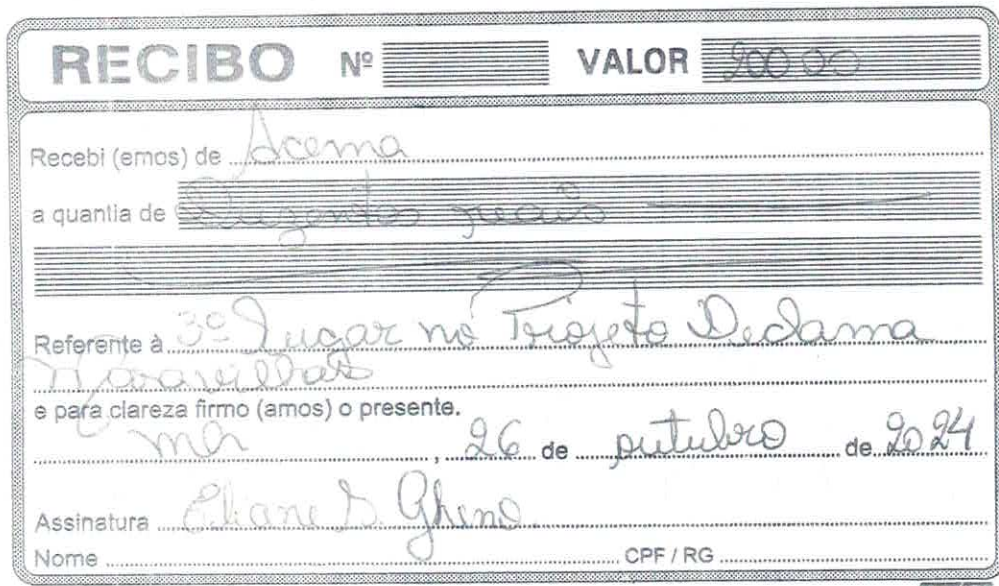 RECIBO Nº VALOR 200 00
Recebi (emos) de Acema
a quantia de Duzentos reais
Referente à 3º Lugar no Projeto Declama
Maravilhas
e para clareza firmo (amos) o presente.
mh, 26 de outubro de 2024
Assinatura Eliane S. Gheno
Nome CPF / RG